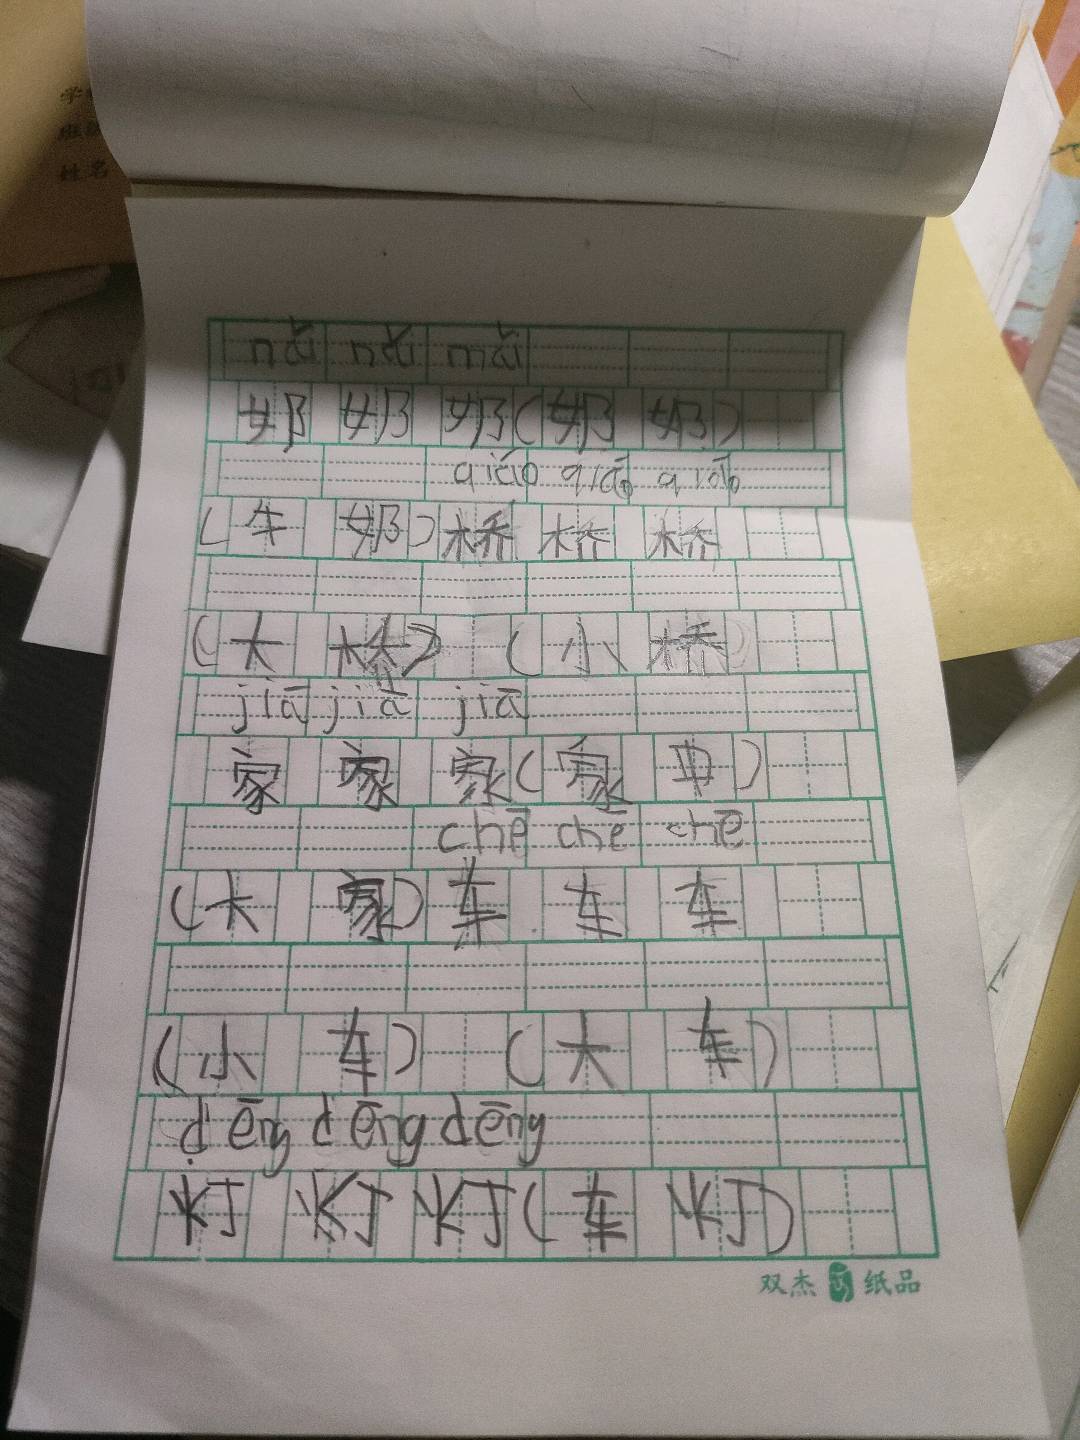 学
班级
姓名
nǎi nǎi mǎi
奶 奶 奶(奶 奶)
qiáo qiáo qiáo
(牛 奶)桥 桥 桥
(大 桥) (小 桥)
jiā jiā jiā
家 家 家(家 中)
chē chē chē
(大 家)车 车 车
(小 车) (大 车)
dēng dēng dēng
灯 灯 灯(车 灯)
双杰 纸品